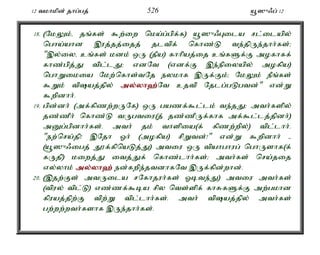 12 வமாமின் தாப்பத் 526 யூஸுஃப் 12
18. (மேலும், தங்கள் கூற்றை மெய்ப்பிக்க) யூஸுஃபுடைய சட்டையில்
பொய்யான இரத்தத்தைத் தடவிக் கொண்டு வந்திருந்தார்கள்;
"இல்லை; உங்கள் மனம் ஒரு (தீய) காரியத்தை உங்களுக்கு அழகாகக்
காண்பித்து விட்டது; எனவே (எனக்கு இந்நிலையில் அழகிய)
பொறுமையை மேற்கொள்வதே நலமாக இருக்கும்; மேலும் நீங்கள்
கூறும் விஷயத்தில் அல்லாஹ்வே உதவி தேடப்படுபவன்" என்று
கூறினார்.
19. பின்னர் (அக்கிணற்றருகே) ஒரு பயணக்கூட்டம் வந்தது; அவர்களில்
தண்ணீர் கொண்டு வருபவரை(த் தண்ணீருக்காக அக்கூட்டத்தினர்)
அனுப்பினார்கள். அவர் தம் வாளியை(க் கிணற்றில்) விட்டார்.
"நற்செய்தி! இதோ ஓர் (அழகிய) சிறுவன்!" என்று கூறினார் -
(யூஸுஃபைத் தூக்கியெடுத்து) அவரை ஒரு வியாபாரப் பொருளாக(க்
கருதி) மறைத்து வைத்துக் கொண்டார்கள்; அவர்கள் செய்ததை
எல்லாம் அல்லாஹ் நன்கறிந்தவனாகவே இருக்கின்றான்.
20. (இதற்குள் அவருடைய சகோதரர்கள் ஓடிவந்து) அவரை அவர்கள்
(விரல் விட்டு) எண்ணக்கூடிய சில வெள்ளிக் காசுகளுக்கு அற்பமான
கிரயத்திற்கு விற்று விட்டார்கள். அவர் விஷயத்தில் அவர்கள்
பற்றற்றவர்களாக இருந்தார்கள்.